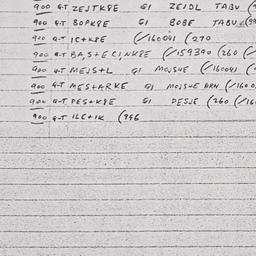 900 4-T ZEJTK8E GI ZEJDL TABU
900 4-T BOPK8E GI BOBE TABU
900 4-T IC+K8E (/16004) (270
900 4-T BA,S+E CINK8E (/159390 (260 (/
900 4-T MEJS+L GI MOJSHE (/16004)
900 4-T MES+ARKE GI MOJSHE (/1600
900 4-T PES+K8E GI PESJE (260 (/16
900 4-T ILC+IK (346